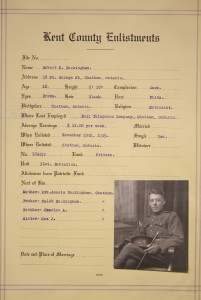 Kent County Enlistments
File No.
Name Robert E. Buckingham.
Address 15 St. George St, Chatham, Ontario.
Age 22. Height 5' 10" Complexion Dark.
Eyes Brown. Hair Black. Race White.
Birthplace Chatham, Ontario. Religion Methodist.
Last Employed by Bell Telephone Company, Chatham, Ontario.
Average Earnings per week. Married
When Enlisted November Single Yes.
Where Enlisted Chatham, Ontario. Widower
No. Rank Private.
Unit Battalion.
Allowance from Patriotic Fund
Next of Kin
Mother: Mrs. Buckingham, Chatham.
Father: Ralph Buckingham. "
Brother: Charles A. "
Sister: J. "
Date and Place of Marriage